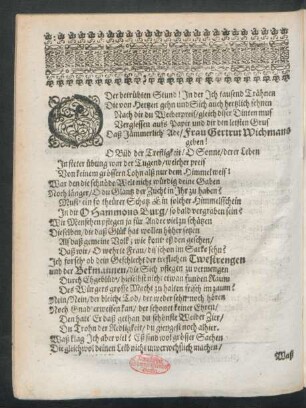 Der betrübten Stund! In der Ich tausend Trähnen
Die von Hertzen gehn und Sich auch hertzlich sehnen
Nach die du Weiberpreiß/ gleich diser Dinten muß
Vergiessen aufs Papir und dir den letsten Gruß
Daß Jämmerlich Ade/ Frau Gertrut Wichmans
geben!
O Bild der Trefligkeit/ O Sonne/ derer Leben
In steter übung war der Tugend/ welcher preiß
Von keinem grössern Lohn als nur dem Himmel weiß!
War den die schnöde Welt nicht würdig deine Gaben
Noch länger/ O du Glantz der Zucht in Ihr zu haben?
Muß/ ein so theurer Schatz
In dir O Hammons Burg/ so bald vergraben sein?
Wir Menschen pflegen ja für Ander viel zu schätzen
Dieselben/ die daß Glük hat wollen höher setzen
Als daß gemeine Volk; wie komt es den geschen/
Daß wir/ O wehrte Frau/ dich schon im Sarke sehn?
Ich forsche ob dein Geschlecht der treflichen Twestrengen
und der Bekmannen/ die Sich pflegen zu vermengen
Durch Ehgelübde/ hie nicht etwan kunten Raum
Des Würgers grosse Macht zu halten
Nein/ Nein/ der bleiche Tod/ der weder seht noch hören
Noch Gnad erweisen kan/ der schonet keiner Ehren/
Den hatt Er daß gethan du schönste Weiber Zier/
Du Trohn der Redligkeit/ du giengest noch alhier.
Waß klag Ich aber viel? Es sind wol größer Sachen
Die gleichwol deinen Leib nicht unverweßlich machen/
Waß